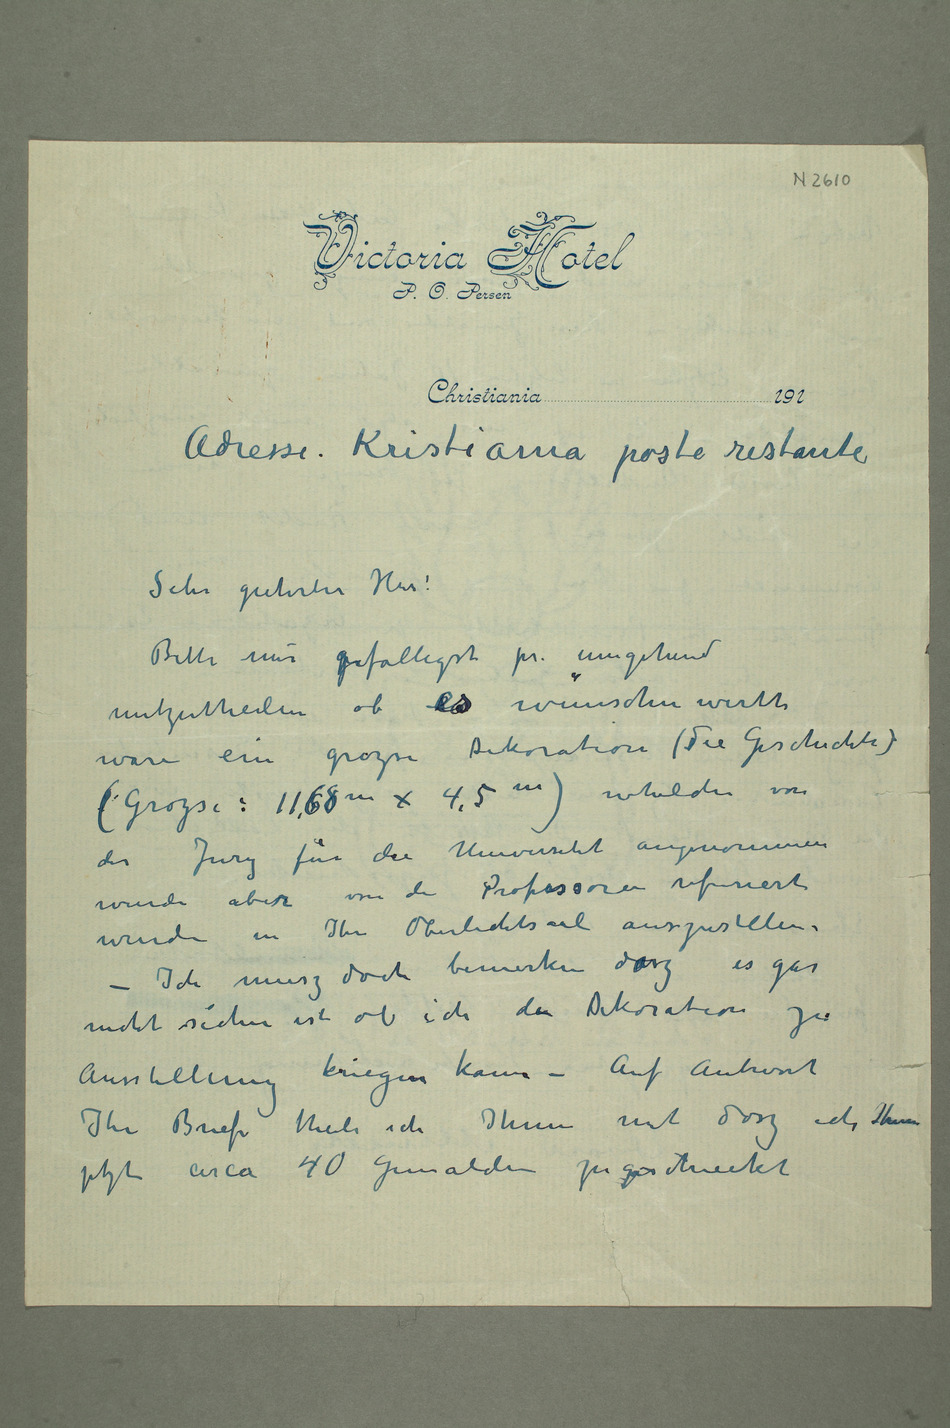 N 2610
Victoria Hotel
P. O. Persen
Christiania 191
Adresse. Kristiania poste restante
Sehr geehrter Herr!
Bitte mir gefälligst pr. umgehend
mitzutheilen ob es wünschenwerth
wäre ein grozse Dekoration (Die Geschichte)
(Grozse: 11,68 m x 4,5 m) whelche von
der Jury für die Universitet angenommen
wurde aber von de Professoren refusiert
wurde in Ihre Oberlichtsaal auszustellen.
– Ich musz doch bemerken dasz es gar
nicht sicher ist ob ich die Dekoration zu
Ausstellung kriegen kann – Auf Antwort
Ihr Briefe theile ich Ihnen mit dasz ich Ihnen
jetzt circa 40 Gemälden zugeschieckt